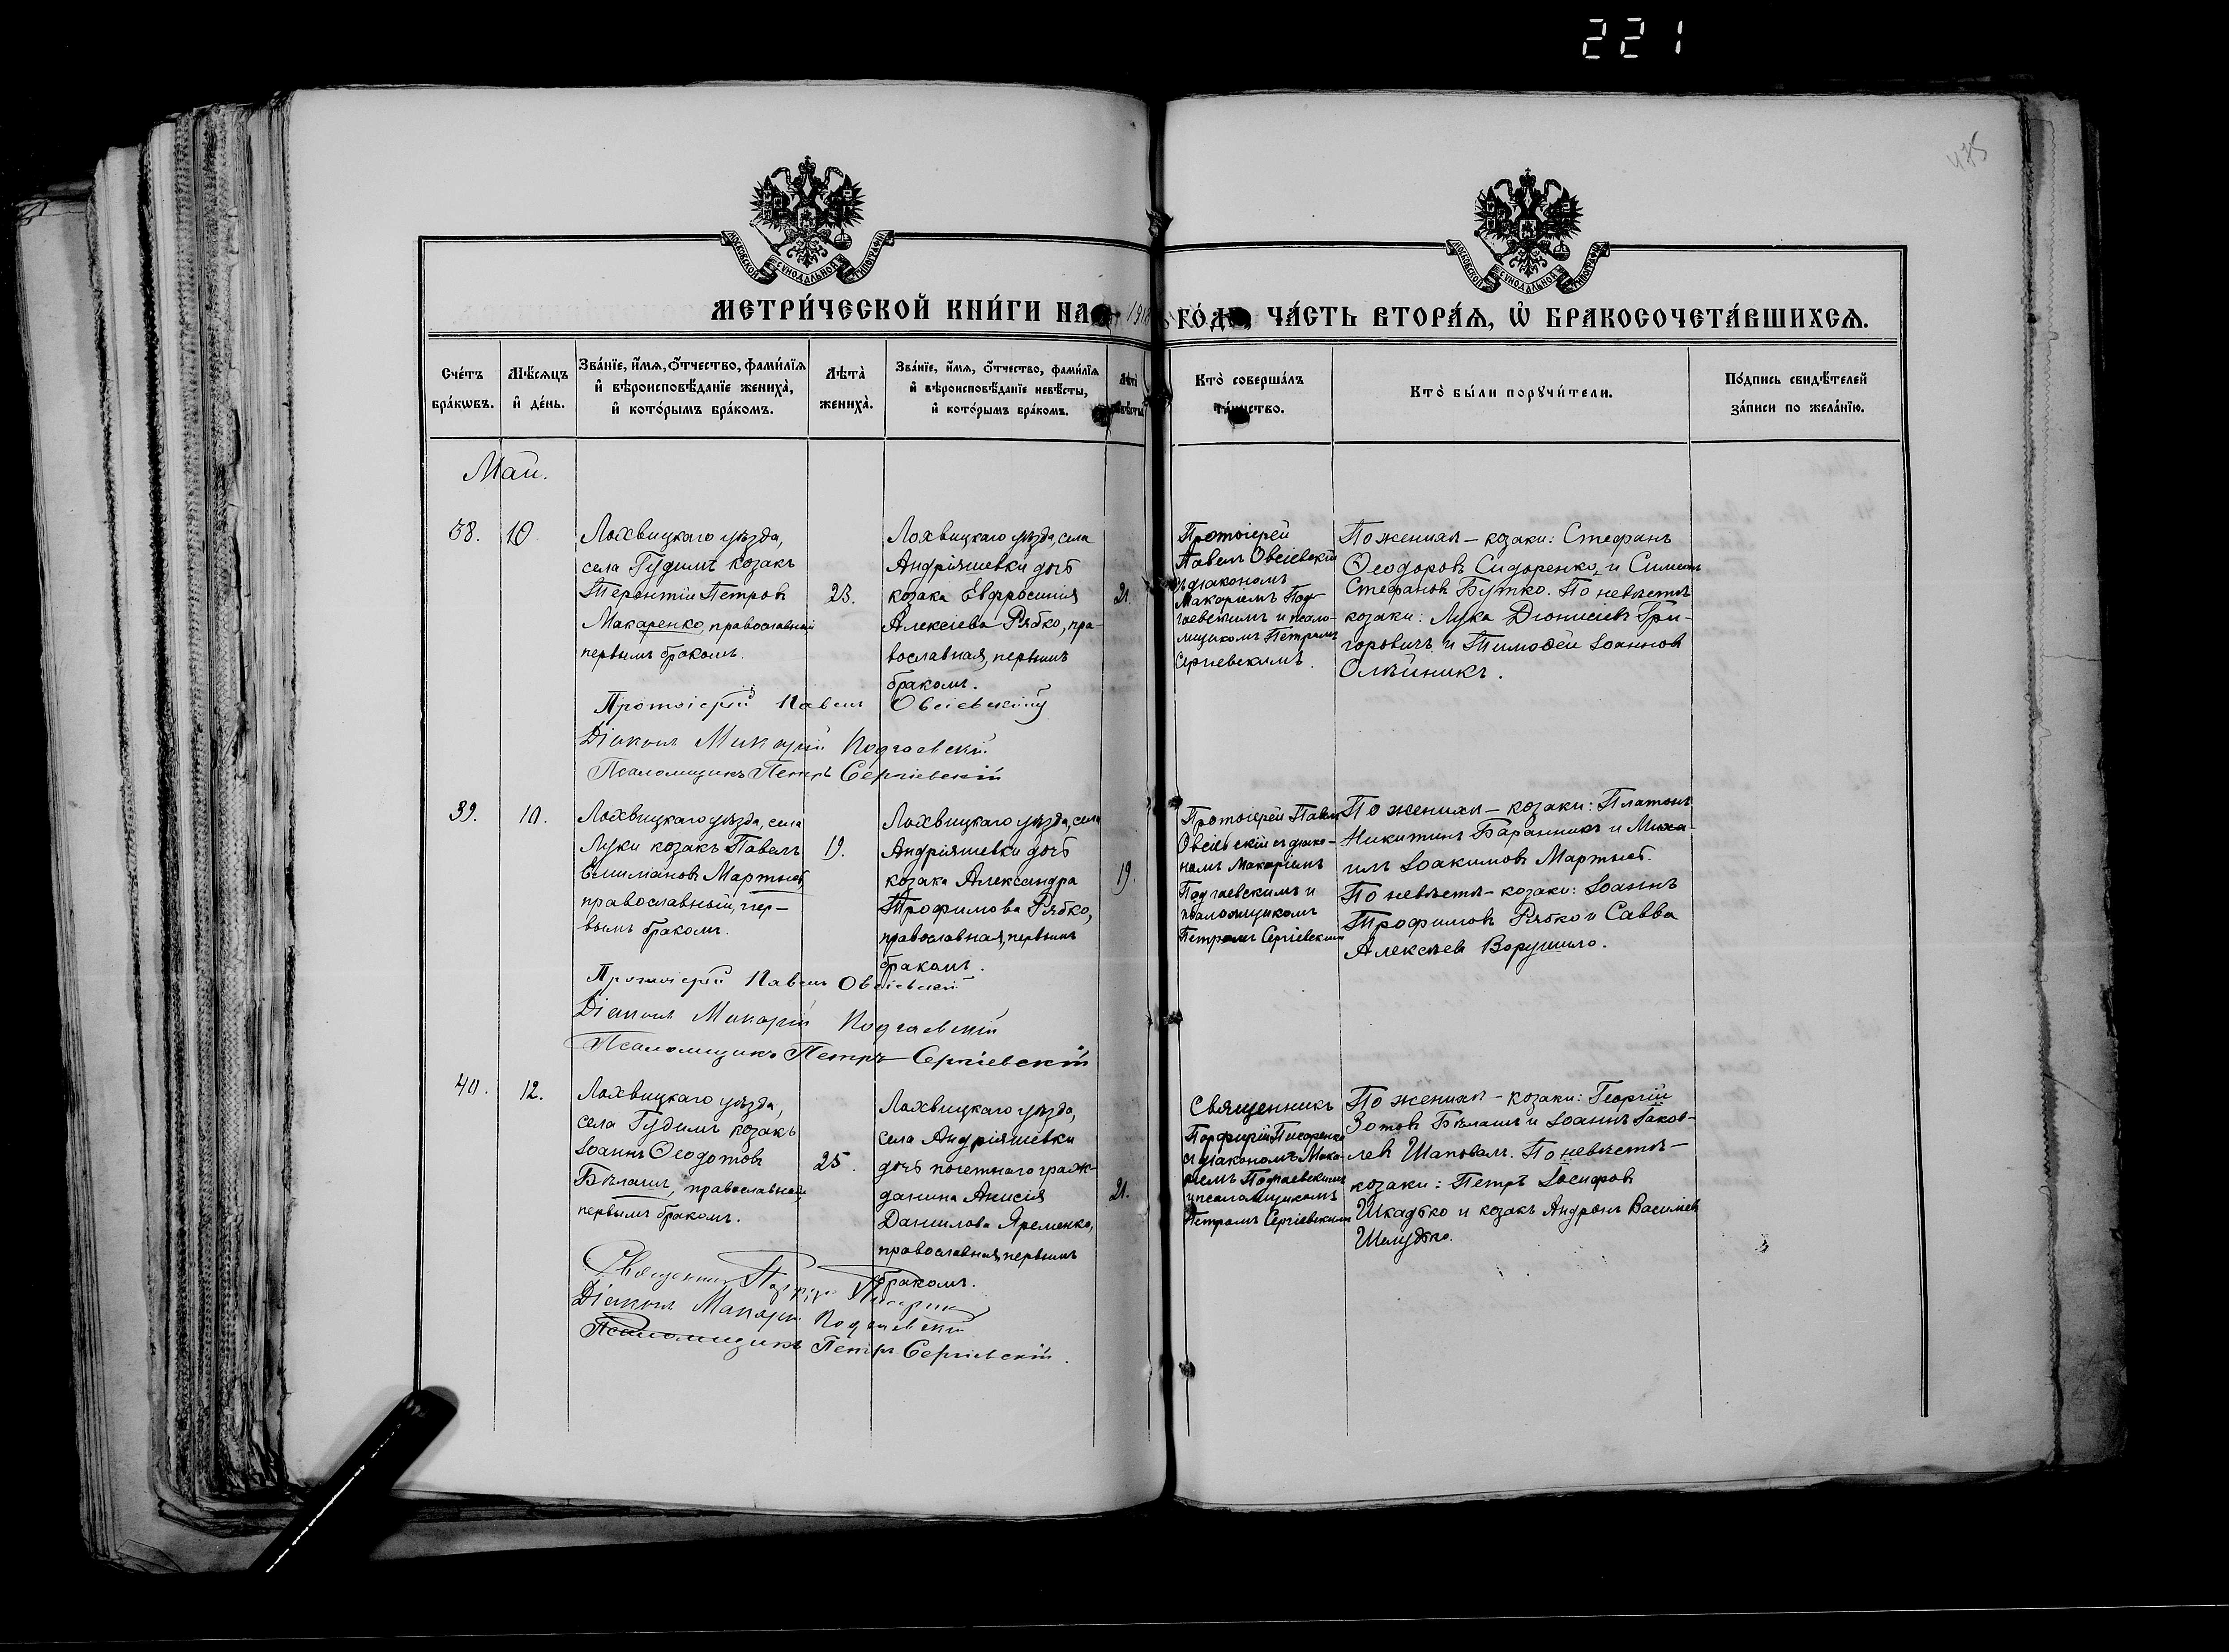 221
475
МОСКОВСКОЙ СУНОДАЛЬНОЙ ТИПОГРАФІИ
МОСКОВСКОЙ СУНОДАЛЬНОЙ ТИПОГРАФІИ
МЕТРИ́ЧЕСКОЙ КНИ́ГИ НА ГО́ДЪ, ЧА́СТЬ ВТОРА́Я, Ѡ҆ БРАКОСОЧЕТА́ВШИХСЯ.
Сче́тъ
бра́кѡвъ.
Мѣ́сяцъ
и҆ де́нь.
Зва́нїе, и҆́мя, ѻ҆́тчество, фами́лїя
и҆ вѣроисповѣ́данїе жениха̀,
и҆ кото́рымъ бра́комъ.
Лѣта̀
жениха̀.
Зва́нїе, и҆́мя, ѻ҆́тчество, фами́лїя
и҆ вѣроисповѣ́данїе невѣ́сты,
и҆ кото́рымъ бра́комъ.
Лѣта̀
невѣ́сты
Кто̀ соверша́лъ
та́инство.
Кто̀ бы́ли порꙋчи́тели.
По́дпись свидѣ́телей
за́писи по жела́нїю.
Май.
38.
10
Лохвицкаго уѣзда,
села Гудимъ козакъ
Терентій Петровъ
Макаренко, православный
первымъ бракомъ.
23.
Лохвицкаго уѣзда, села
Андріяшевки дочь
козака Евфросинія
Алексіева Рябко, пра-
вославная, первымъ
бракомъ.
21.
Протоіерей
Павелъ Овсіевскій
съ діакономъ
Макаріемъ Под-
гаевскимъ и псало-
мщикомъ Петромъ
Сергіевскимъ.
По женихѣ – козаки: Стефанъ
Ѳеодоровъ Сидоренко, и Симеонъ
Стефановъ Бутко. По невѣстѣ
козаки: Лука Діонисіевъ Гри-
горовичъ и Тимоѳей Іоанновъ
Олѣйникъ.
Протоіерей Павелъ Овсіевскій
Діаконъ Макарій Подгаевскій
Псаломщикъ Петръ Сергіевскій
39.
10.
Лохвицкаго уѣзда, села
Луки козакъ Павелъ
Емиліановъ Мартысь
православный, пер-
вымъ бракомъ.
19.
Лохвицкаго уѣзда, села
Андріяшевки дочь
козака Александра
Трофимова Рябко,
православная, первымъ
бракомъ.
19.
Протоіерей Павелъ
Овсіевскій съ діако-
номъ Макаріемъ
Подгаевскимъ и
псаломщикомъ
Петромъ Сергіевскимъ
По женихѣ – козаки: Платонъ
Никитинъ Баранникъ и Миха-
илъ Іоакимовъ Мартысь.
По невѣстѣ – козаки: Іоаннъ
Трофимовъ Рябко и Савва
Алексѣевъ Ворушило.
Протоіерей Павелъ Овсіевскій
Діаконъ Макарій Подгаевскій
Псаломщикъ Петръ Сергіевскій
40.
12.
Лохвицкаго уѣзда,
села Гудимъ козакъ
Іоаннъ Ѳеодотовъ
Бѣлашъ, православный
первымъ бракомъ.
25.
Лохвицкаго уѣзда,
села Андріяшевки
дочь почетнаго граж-
данина Анисія
Даниилова Яременко,
православная, первымъ
бракомъ.
21.
Священникъ
Порфирій Писаренко
съ діакономъ Мака-
ріемъ Подгаевскимъ
и псаломщикомъ
Петромъ Сергіевскимъ
По женихѣ – козаки: Георгій
Зотовъ Бѣлашъ и Іоаннъ Іаков-
левъ Шаповалъ. По невѣстѣ –
козаки: Петръ Іосифовъ
Шкадько и козакъ Андронъ Василіевъ
Шелудько.
Священникъ Порфирій Писаренко
Діаконъ Макарій Подгаевскій
Псаломщикъ Петръ Сергіевскій.